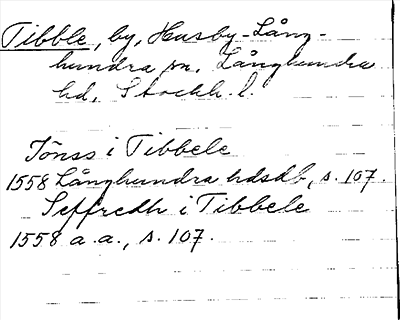 Tibble, by, Husby-Lång-
hundra sn. Långhundra
hd, Stockh. l.
Jönss i Tibbele
1558 Långhundra hdsdb, s. 107.
Seffredh i Tibbele
1558 a.a., s. 107.